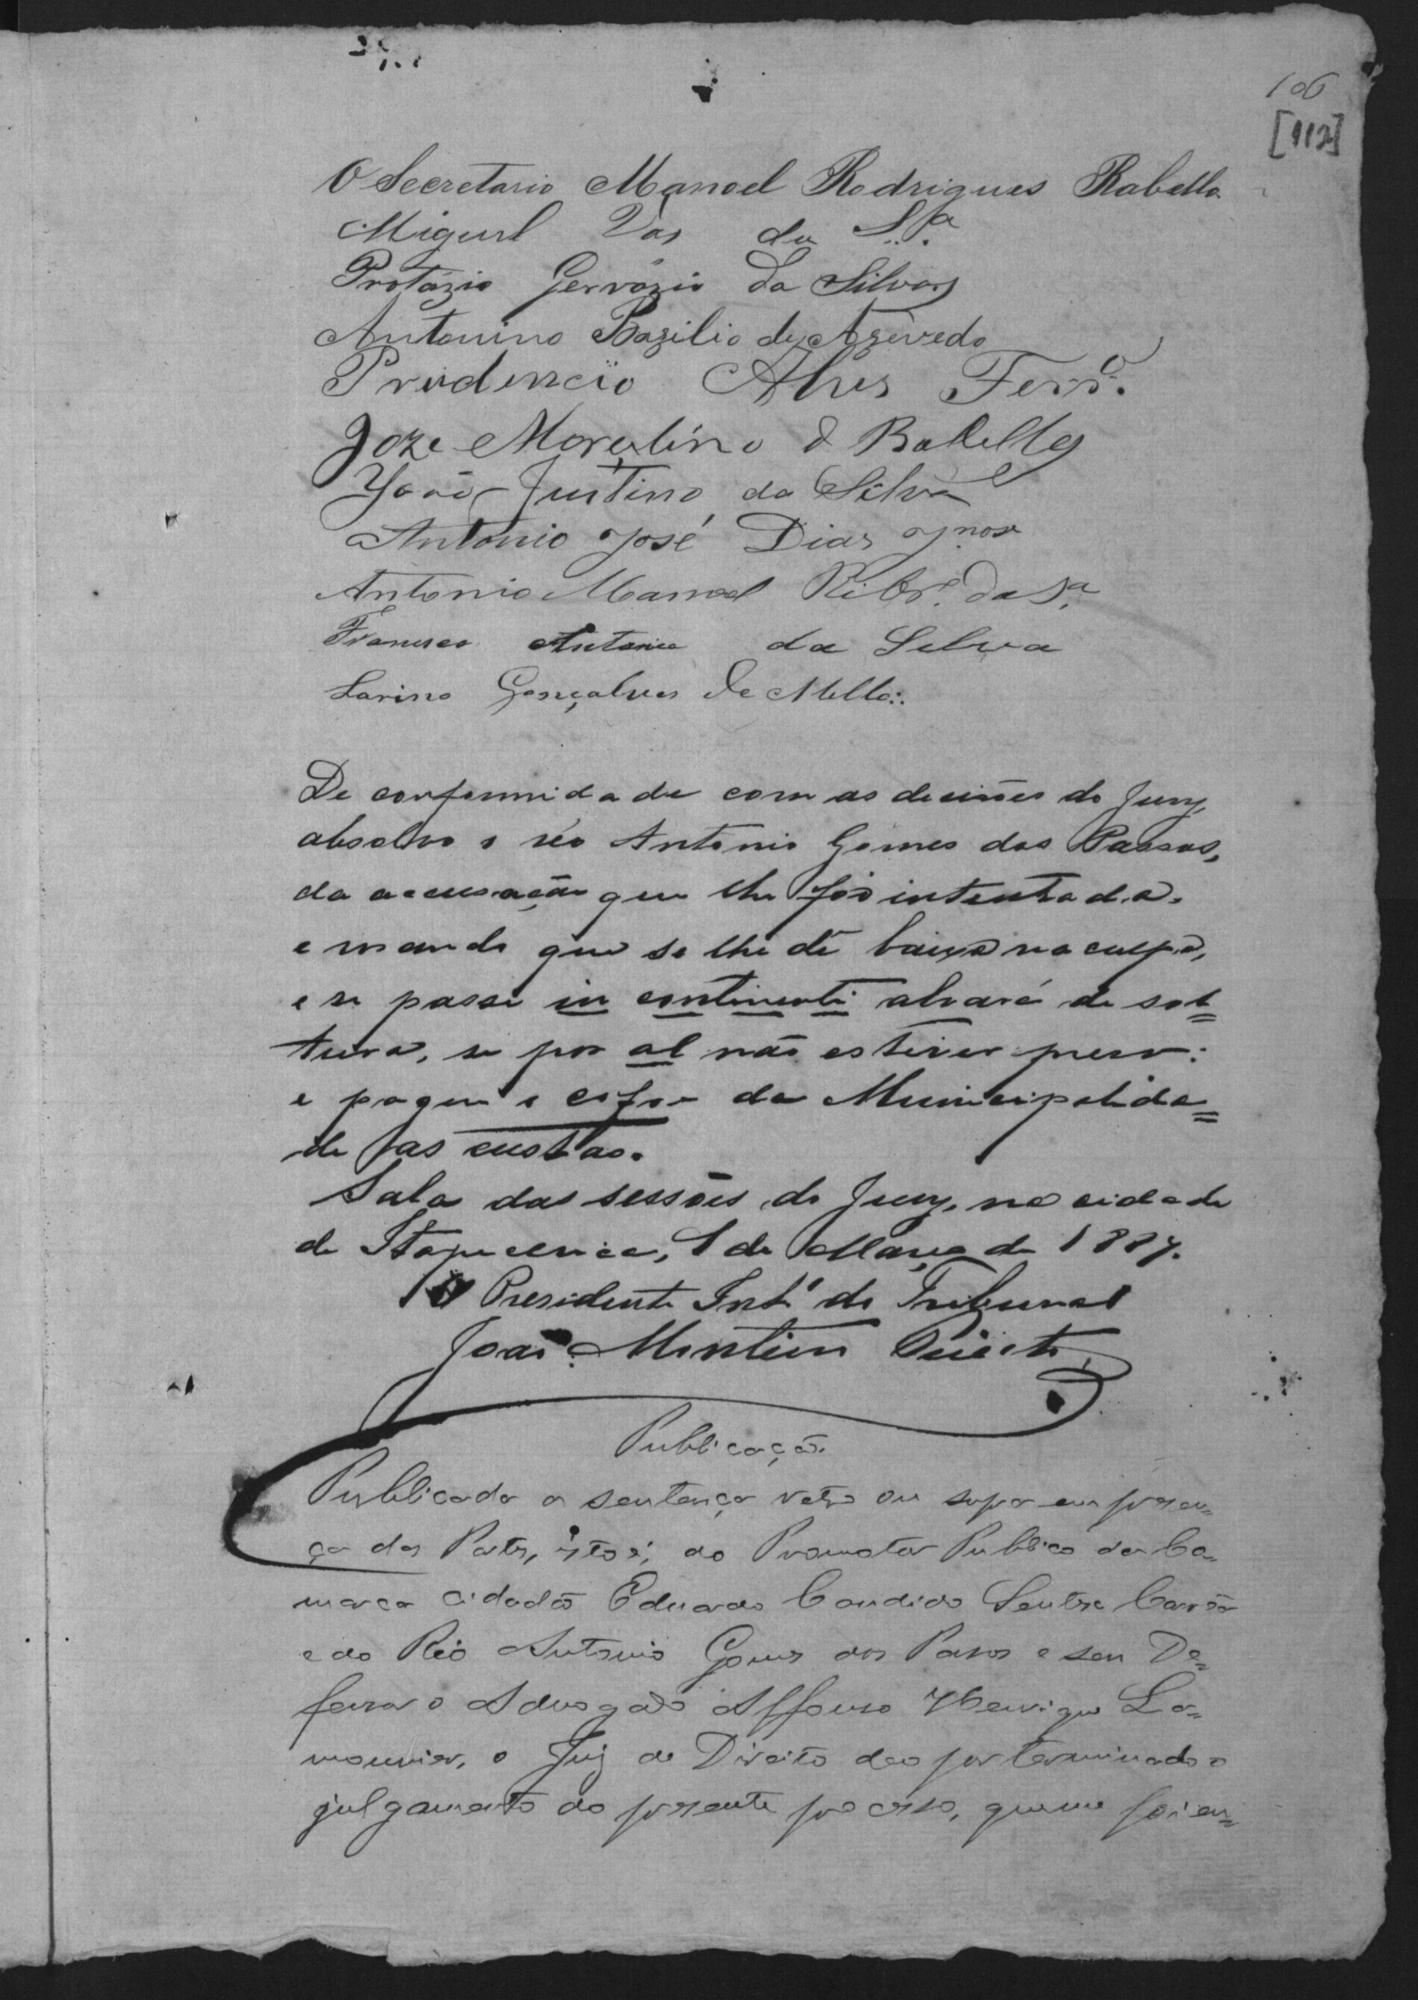 106
[112]
O Secretario Manoel Rodrigues Rabello
Miguel Vas da S.ª
Protázio Gervázio da Silva
Antonino Bazilio de Azevedo
Prudencio Alves Ferr.º
Joze Marculino d Rabello
João Justino da Silva
Antonio José Dias
Antonio Manoel Ribr.º da S.ª
Francisco Antonio da Silva
Larino Gonçalves de Mello
De conformidade com as decisões do Jury,
absolvo o réo Antonio Gomes dos Passos,
da accusação que lhe foi intentada,
e mando que se lhe dê baixa na culpa,
e se passe in continenti alvará de sol=
tura, se por al não estiver preso:
e pague o cofre da Municipalida=
de as custas.
Sala das sessões do Jury, na cidade
de Itapecerica, 1 de Março de 1887.
O Presidente Int.º do Tribunal
João
Publicação.
Publicada a sentença retro ou supra em presen=
ça das Partes, isto é, do Promotor Publico da Co=
marca cidadão Eduardo Candido
e do Réo Antonio Gomes dos Passos e seu De=
fensor o Advogado Affonso Henrique La=
mounier, o Juiz de Direito deo por terminado o
julgamento do presente processo, que me foi en=